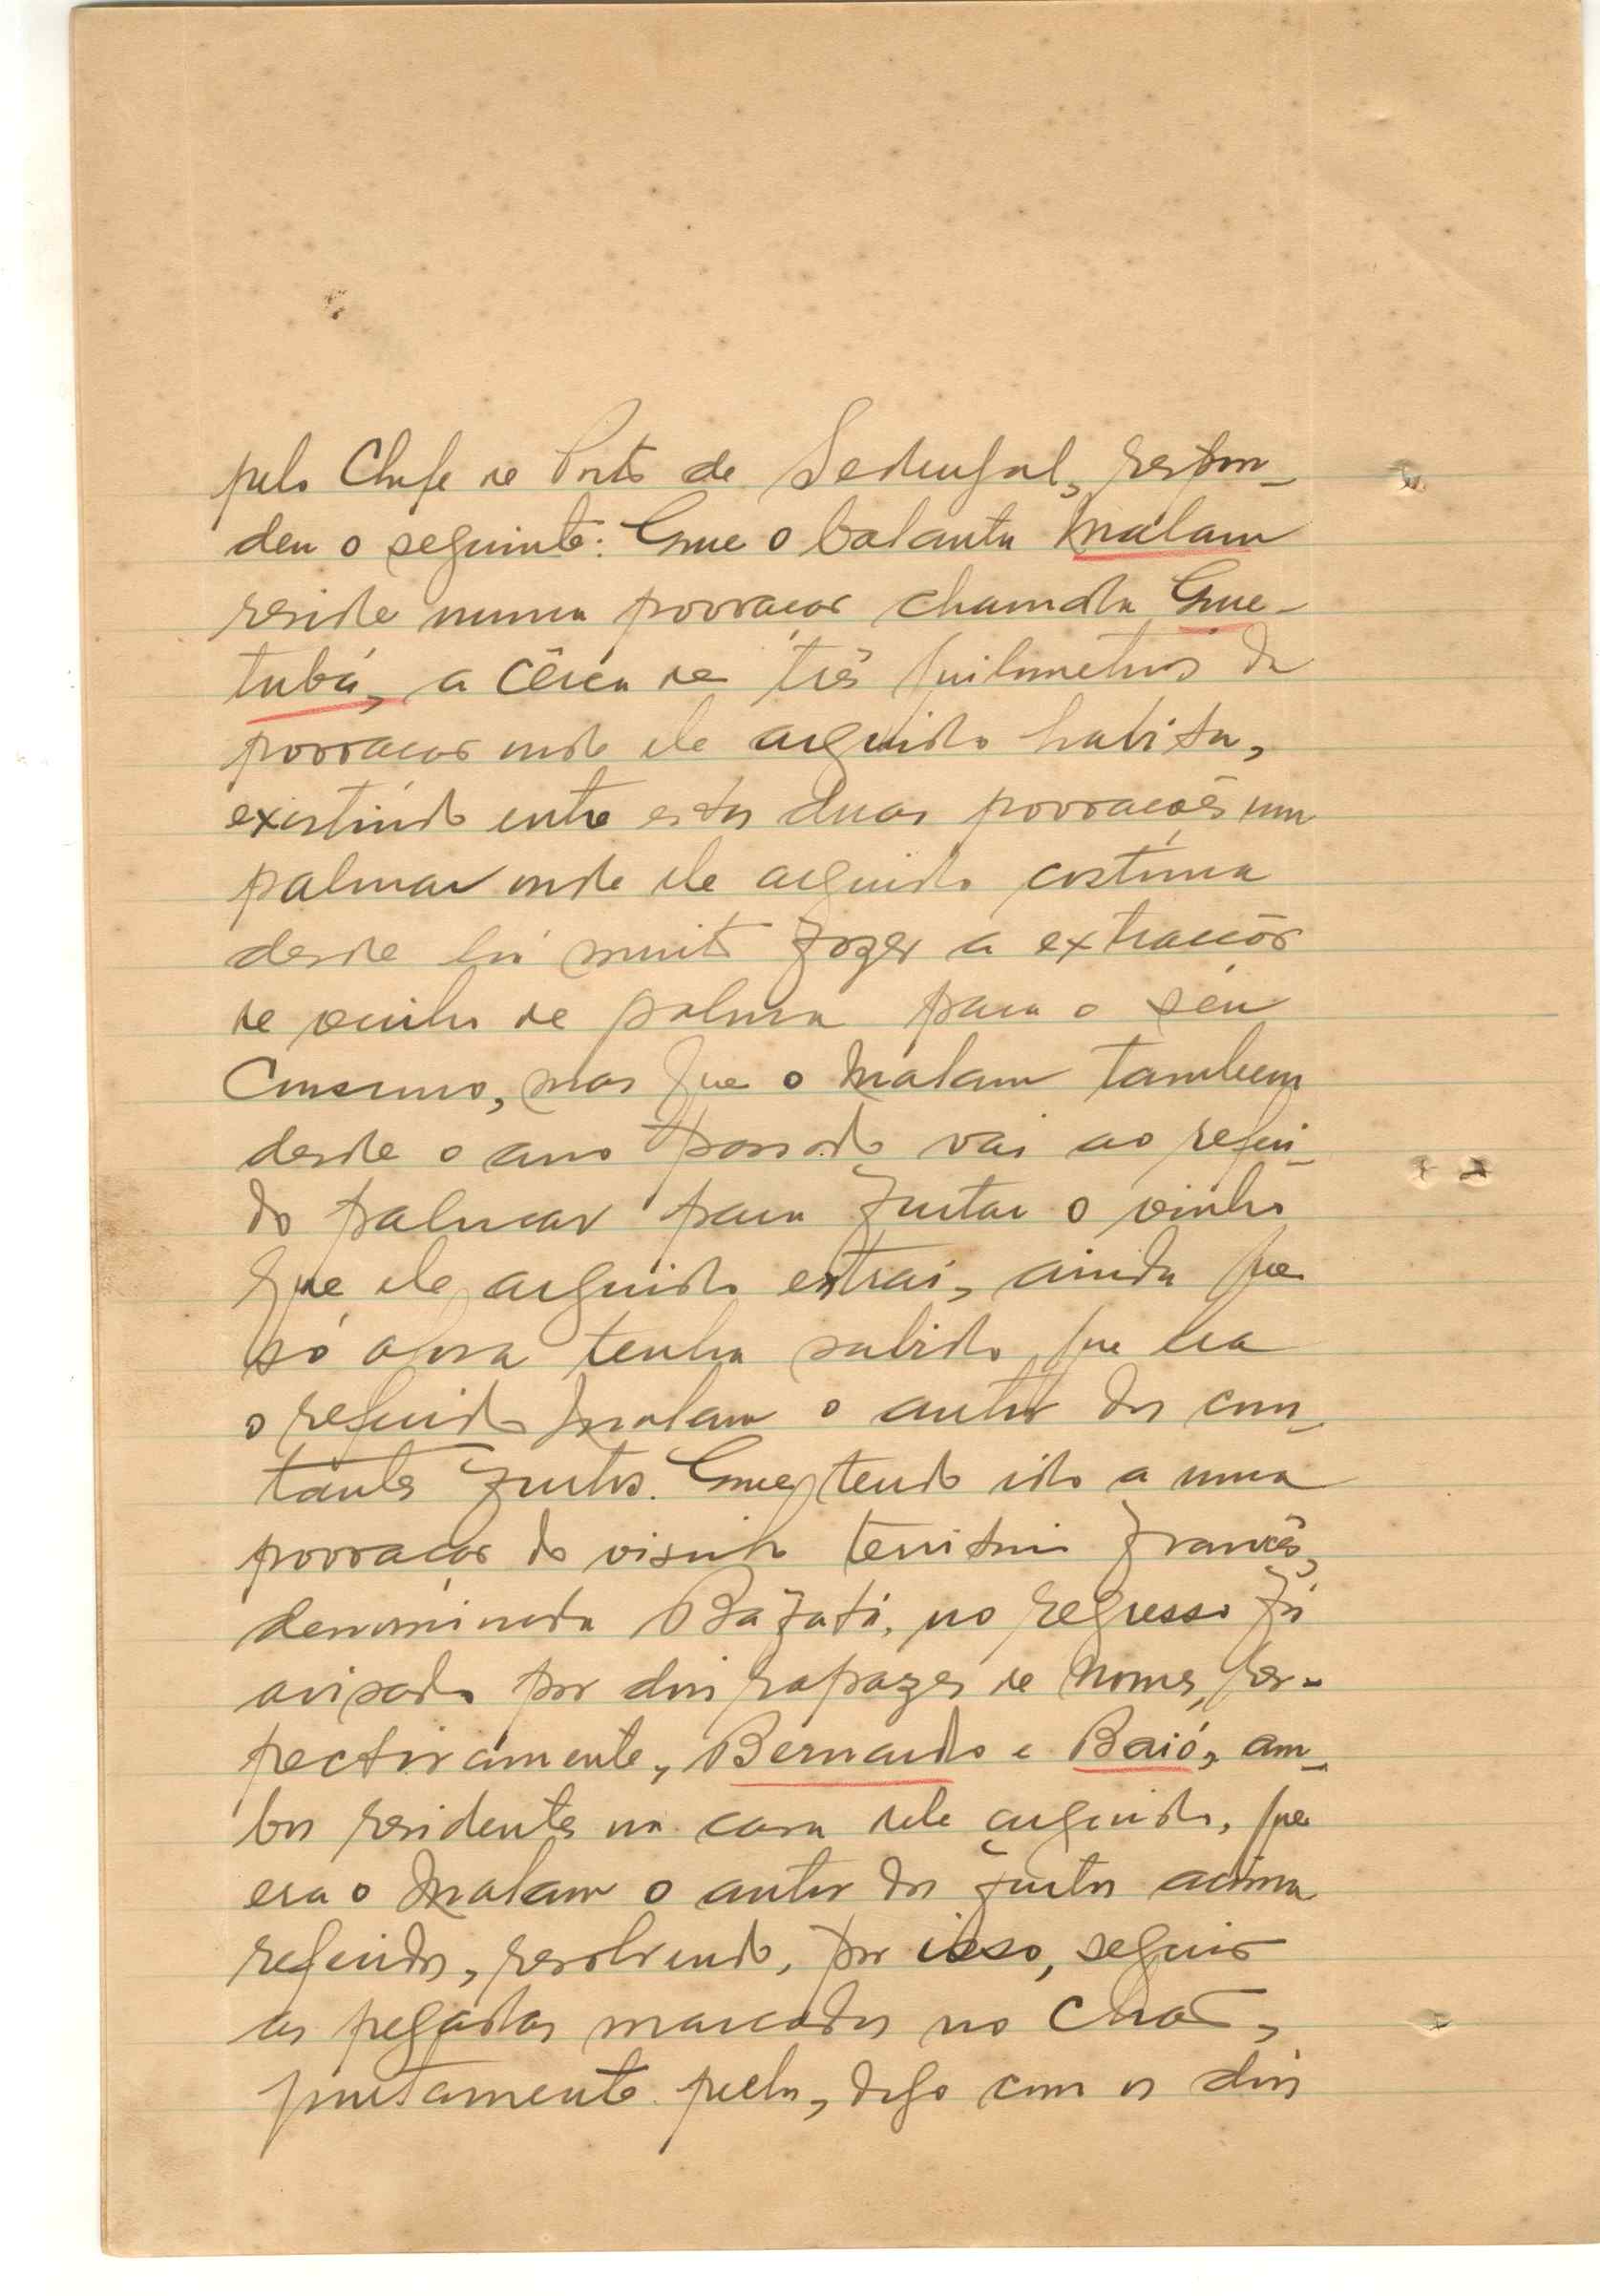 pelo Chefe de Posto de Sedengal, respon-
deu o seguinte: Que o balanta Malam
reside numa povoação chamada Que-
tubá, a cêrca de três quilometros da
povoação onde ele arguido habita,
existindo entre estas duas povoações um
palmar onde ele arguido costuma
desde há muito fazer a extracção
de vinho de palma para o seu
consumo, mas que o Malam tambem
desde o ano passado vai ao referi-
do palmar para furtar o vinho
que ele arguido extrai, ainda que
só agora tenha sabido que era
o referido Malam o autor dos cons-
tantes furtos. Que, tendo ido a uma
povoação do visinho territorio francês,
denominada Bafatá, no regresso foi
avisado por dois rapazes de nomes, res-
pectivamente, Bernardo e Baió, am-
bos residentes na casa dele arguido, que
era o Malam o autor dos furtos acima
referidos, resolvendo, por isso, seguir
as pegadas marcadas no chão,
juntamente pelos, digo com os dois